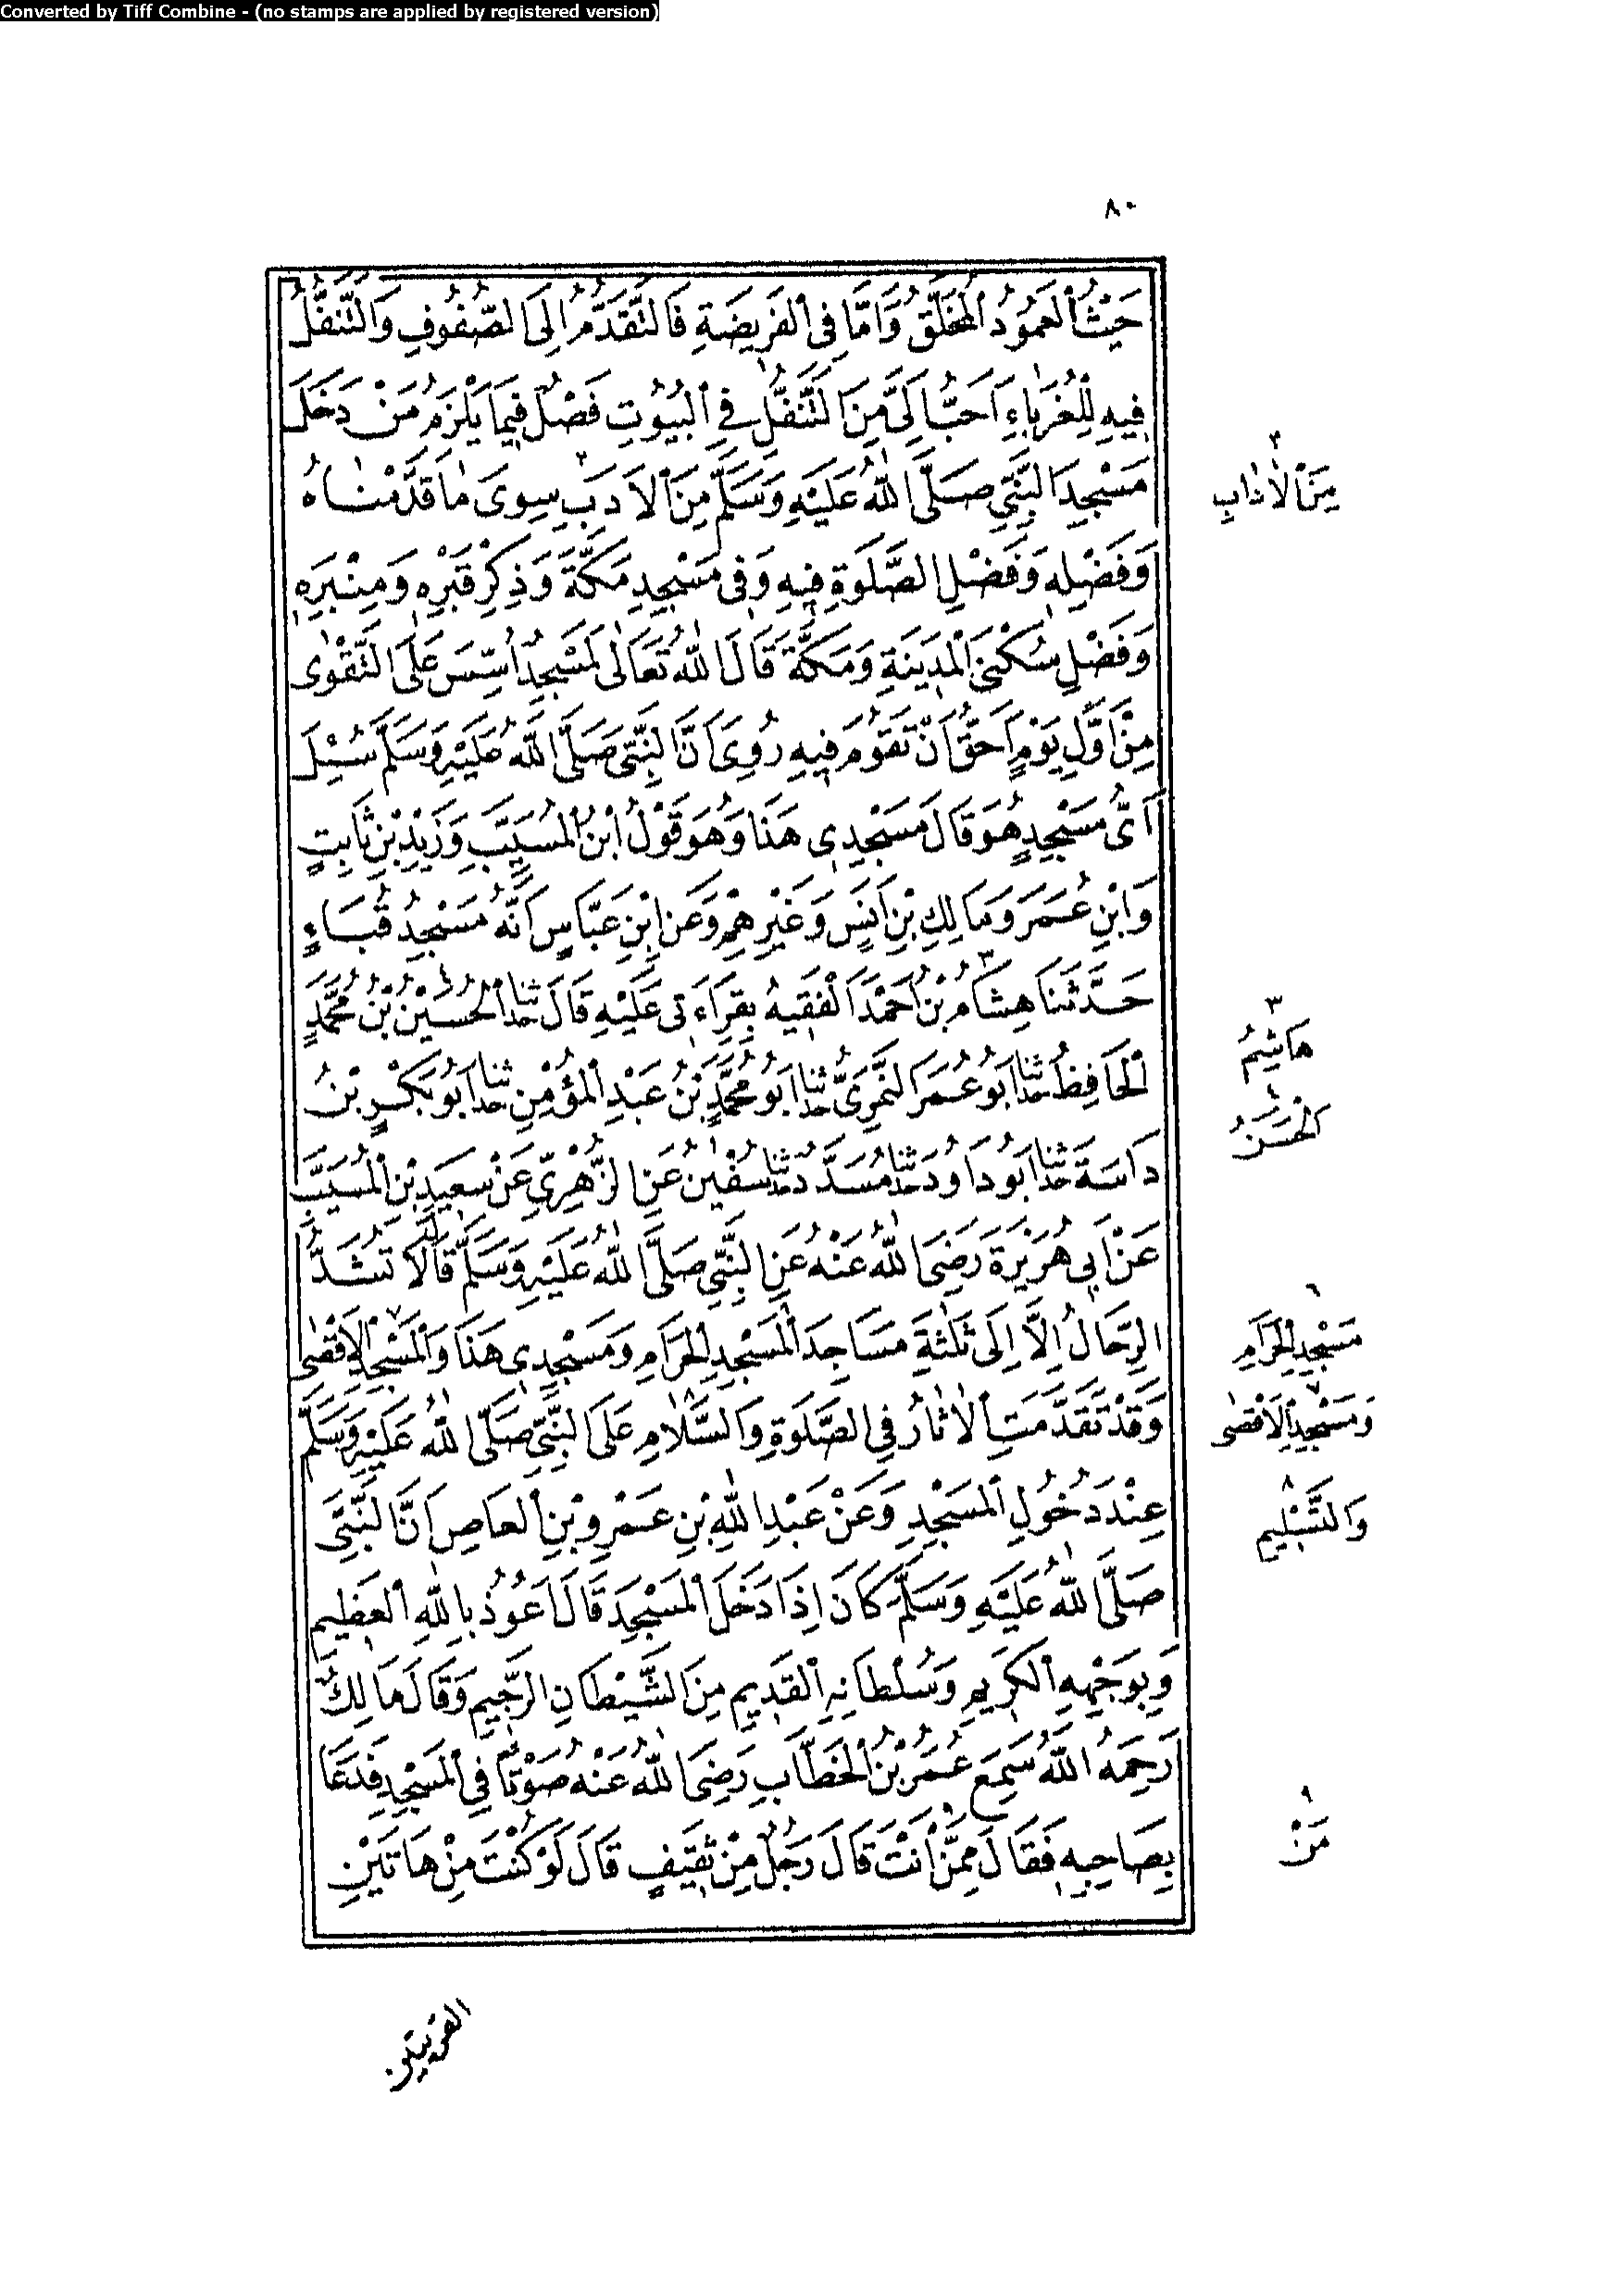 Converted by Tiff Combine - (no stamps are applied by registered version)
٨٠
حَيْثُ الْعَمُودُ الْمُخَلَّقُ وَاَمَّا فِى الْفَرِيضَةِ فَالتَّقَدُّمُ اِلَى الصُّفُوفِ وَالتَّنَفُّلُ
فِيهِ لِلْغُرَبَاءِ اَحَبُّ اِلَىَّ مِنَ التَّنَفُّلِ فِى الْبُيُوتِ فَصْلٌ فِيمَا يَلْزَمُ مَنْ دَخَلَ
مَسْجِدَ النَّبِىِّ صَلَّى اللّٰهُ عَلَيْهِ وَسَلَّمَ مِنَ الْاَدَبِ ٢ سِوَى مَا قَدَّمْنَاهُ
وَفَضْلِهِ وَفَضْلِ الصَّلٰوةِ فِيهِ وَفِى مَسْجِدِ مَكَّةَ وَذِكْرِ قَبْرِهِ وَمِنْبَرِهِ
وَفَضْلِ سُكْنَى الْمَدِينَةِ وَمَكَّةَ قَالَ اللّٰهُ تَعَالٰى لَمَسْجِدٌ اُسِّسَ عَلَى التَّقْوٰى
مِنْ اَوَّلِ يَوْمٍ اَحَقُّ اَنْ تَقُومَ فِيهِ رُوِىَ اَنَّ النَّبِىَّ صَلَّى اللّٰهُ عَلَيْهِ وَسَلَّمَ سُئِلَ
اَىُّ مَسْجِدٍ هُوَ قَالَ مَسْجِدِى هَذَا وَهُوَ قَوْلُ ابْنِ الْمُسَيَّبِ وَزَيْدِ بْنِ ثَابِتٍ
وَابْنِ عُمَرَ وَمَالِكِ بْنِ اَنَسٍ وَغَيْرِهِمْ وَعَنِ ابْنِ عَبَّاسٍ اَنَّهُ مَسْجِدُ قُبَاءٍ
حَدَّثَنَا هِشَامُ ٣ بْنُ اَحْمَدَ الْفَقِيهُ بِقِرَاءَتِى عَلَيْهِ قَالَ حدثنا الْحُسَيْنُ ٤ بْنُ مُحَمَّدٍ
الْحَافِظُ حدثنا اَبُو عُمَرَ النَّمَرِىُّ حدثنا اَبُو مُحَمَّدِ بْنُ عَبْدِ الْمُؤْمِنِ حدثنا اَبُو بَكْرِ بْنُ
دَاسَةَ حدثنا اَبُو دَاوُدَ حدثنا مُسَدَّدٌ حدثنا سُفْيٰنُ عَنِ الزُّهْرِىِّ عَنْ سَعِيدِ بْنِ الْمُسَيَّبِ
عَنْ اَبِى هُرَيْرَةَ رَضِىَ اللّٰهُ عَنْهُ عَنِ النَّبِىِّ صَلَّى اللّٰهُ عَلَيْهِ وَسَلَّمَ قَالَ لَا تُشَدُّ
الرِّحَالُ اِلَّا اِلَى ثَلٰثَةِ مَسَاجِدَ الْمَسْجِدِ الْحَرَامِ وَمَسْجِدِى هَذَا وَالْمَسْجِدِ ٧ الْاَقْصٰى
وَقَدْ تَقَدَّمَتِ الْاٰثَارُ فِى الصَّلٰوةِ وَالسَّلَامِ ٨ عَلَى النَّبِىِّ صَلَّى اللّٰهُ عَلَيْهِ وَسَلَّمَ
عِنْدَ دُخُولِ الْمَسْجِدِ وَعَنْ عَبْدِ اللّٰهِ بْنِ عَمْرِو بْنِ الْعَاصِ اَنَّ النَّبِىَّ
صَلَّى اللّٰهُ عَلَيْهِ وَسَلَّمَ كَانَ اِذَا دَخَلَ الْمَسْجِدَ قَالَ اَعُوذُ بِاللّٰهِ الْعَظِيمِ
وَبِوَجْهِهِ الْكَرِيمِ وَسُلْطَانِهِ الْقَدِيمِ مِنَ الشَّيْطَانِ الرَّجِيمِ وَقَالَ مَالِكٌ
رَحِمَهُ اللّٰهُ سَمِعَ عُمَرُ بْنُ الْخَطَّابِ رَضِىَ اللّٰهُ عَنْهُ صَوْتًا فِى الْمَسْجِدِ فَدَعَا
بِصَاحِبِهِ فَقَالَ مِمَّنْ ٩ اَنْتَ قَالَ رَجُلٌ مِنْ ثَقِيفٍ قَالَ لَوْ كُنْتَ مِنْ هَاتَيْنِ
القريتين
٢
مِنَ الْاٰدَابِ
٣
هَاشِمُ
٤
الْحَسَنُ
٦
مَسْجِدِ الْحَرَامِ
٧
وَمَسْجِدِ الْاَقْصٰى
٨
وَالتَّسْلِيمِ
٩
مَنْ